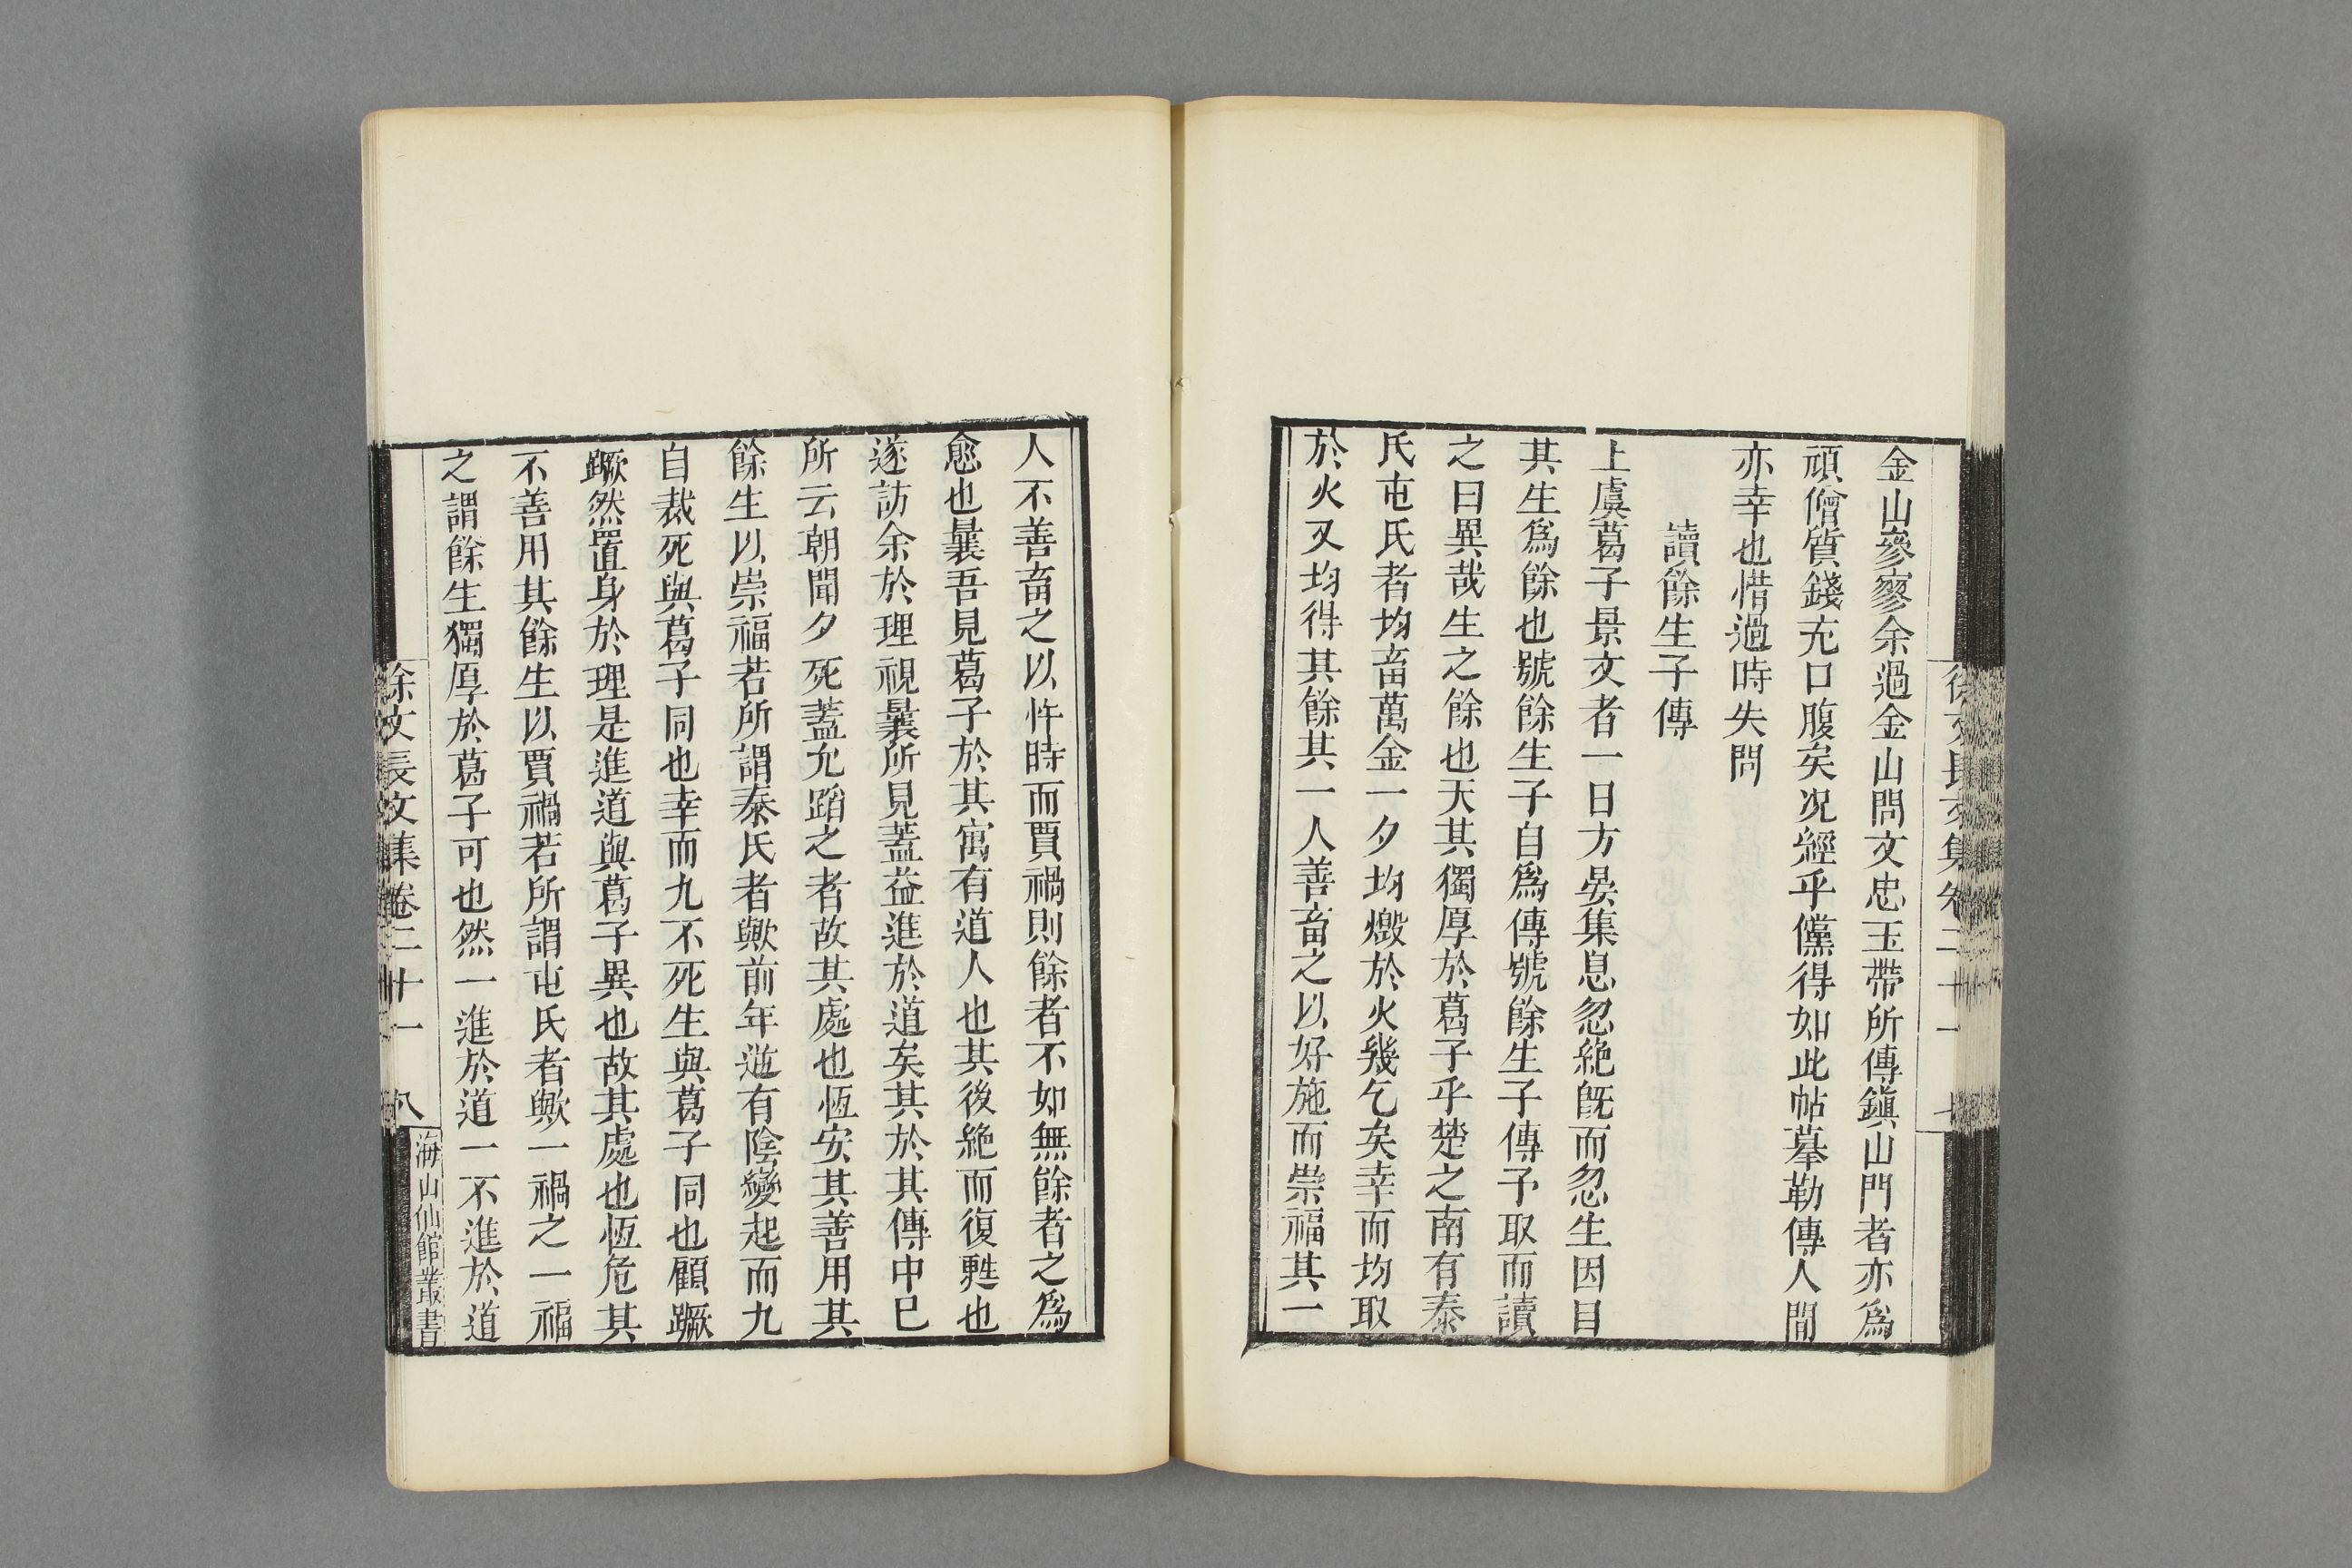 金山參寥余過金山問文忠玉帶所傳鎭山門者亦爲
頑僧質錢充口腹矣况經乎儻得如此帖摹勒傳人間
亦幸也惜過時失問
讀餘生子傳
上虞葛子景文者一日方晏集息忽絶旣而忽生因目
其生爲餘也號餘生子自爲傳號餘生子傳予取而讀
之曰異哉生之餘也天其獨厚於葛子乎楚之南有泰
氏屯氏者均畜萬金一夕均燬於火幾乞矣幸而均取
於火又均得其餘其一人善畜之以好施而崇福其一
人不善畜之以忤時而賈禍則餘者不如無餘者之爲
愈也曩吾見葛子於其寓有道人也其後絶而復甦也
遂訪余於理視曩所見蓋益進於道矣其於其傳中已
所云朝聞夕死蓋允蹈之者故其處也恆安其善用其
餘生以崇福若所謂泰氏者歟前年遊有陰變起而九
自裁死與葛子同也幸而九不死生與葛子同也顧蹶
蹶然置身於理是進道與葛子異也故其處也恆危其
不善用其餘生以賈禍若所謂屯氏者歟一禍之一福
之謂餘生獨厚於葛子可也然一進於道一不進於道
徐文長文集卷二十一 七
徐文長文集卷二十一 八 海山仙館叢書